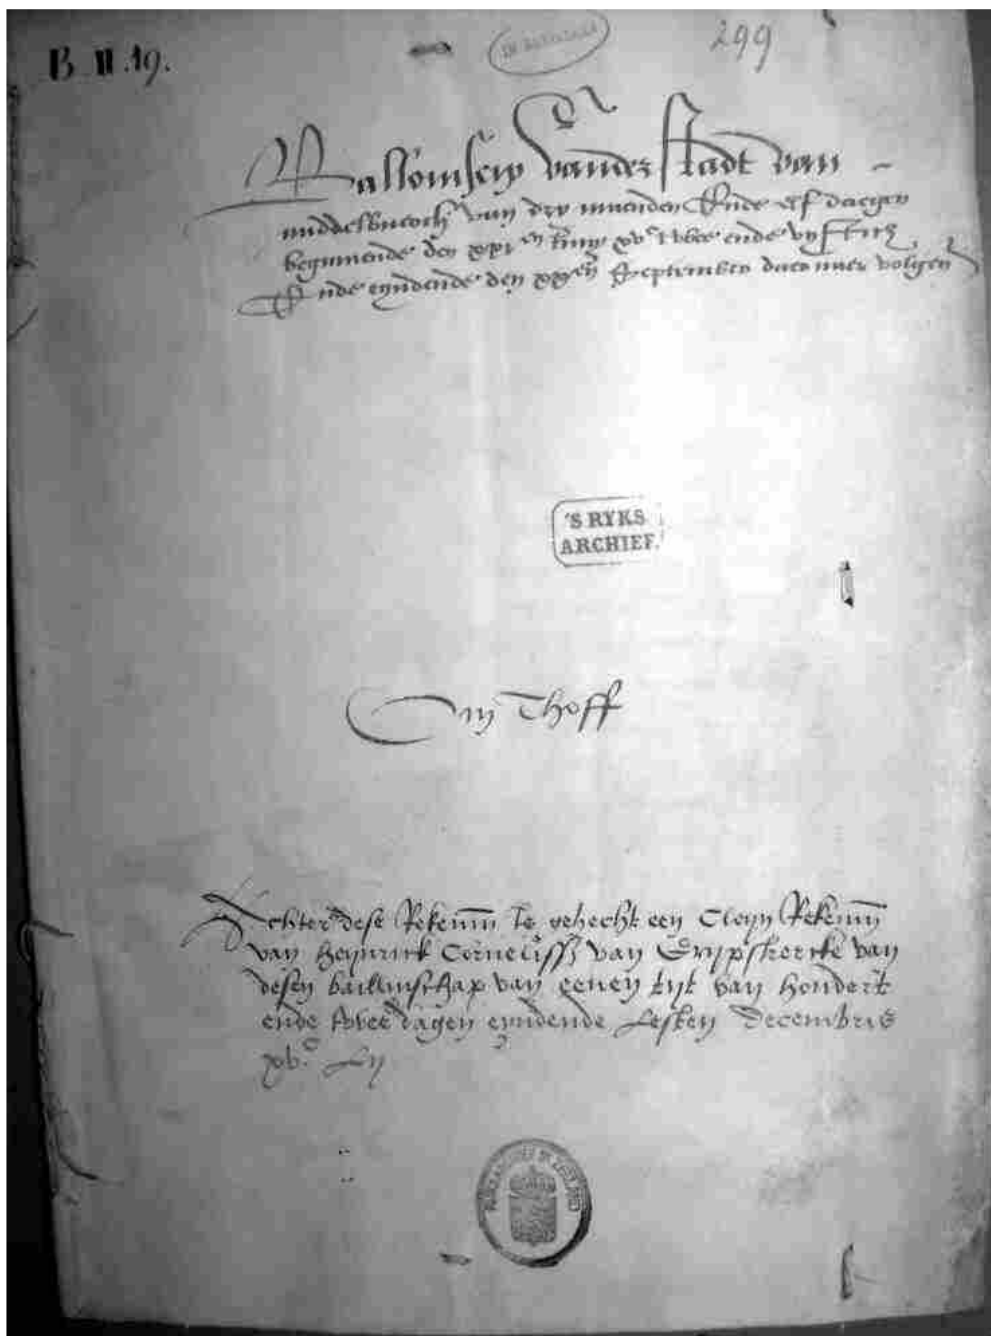 B II .19.
299
Balliuscip vander stadt van
middelburch van drie maenden Ende elf daegen
beginnende den xxien Juny xvc twee ende vyftich
Ende eyndende den xxen Septembris daer naer volgen
'S RYKS
ARCHIEF.
Thoff
Achter dese Rekenin is gehecht een cleyn Rekenin
van heynrick Cornelissz van Grypskercke van
desen bailliuschap van eenen tyt van hondert
ende twee dagen eyndende lesten decembris
xvc Lij